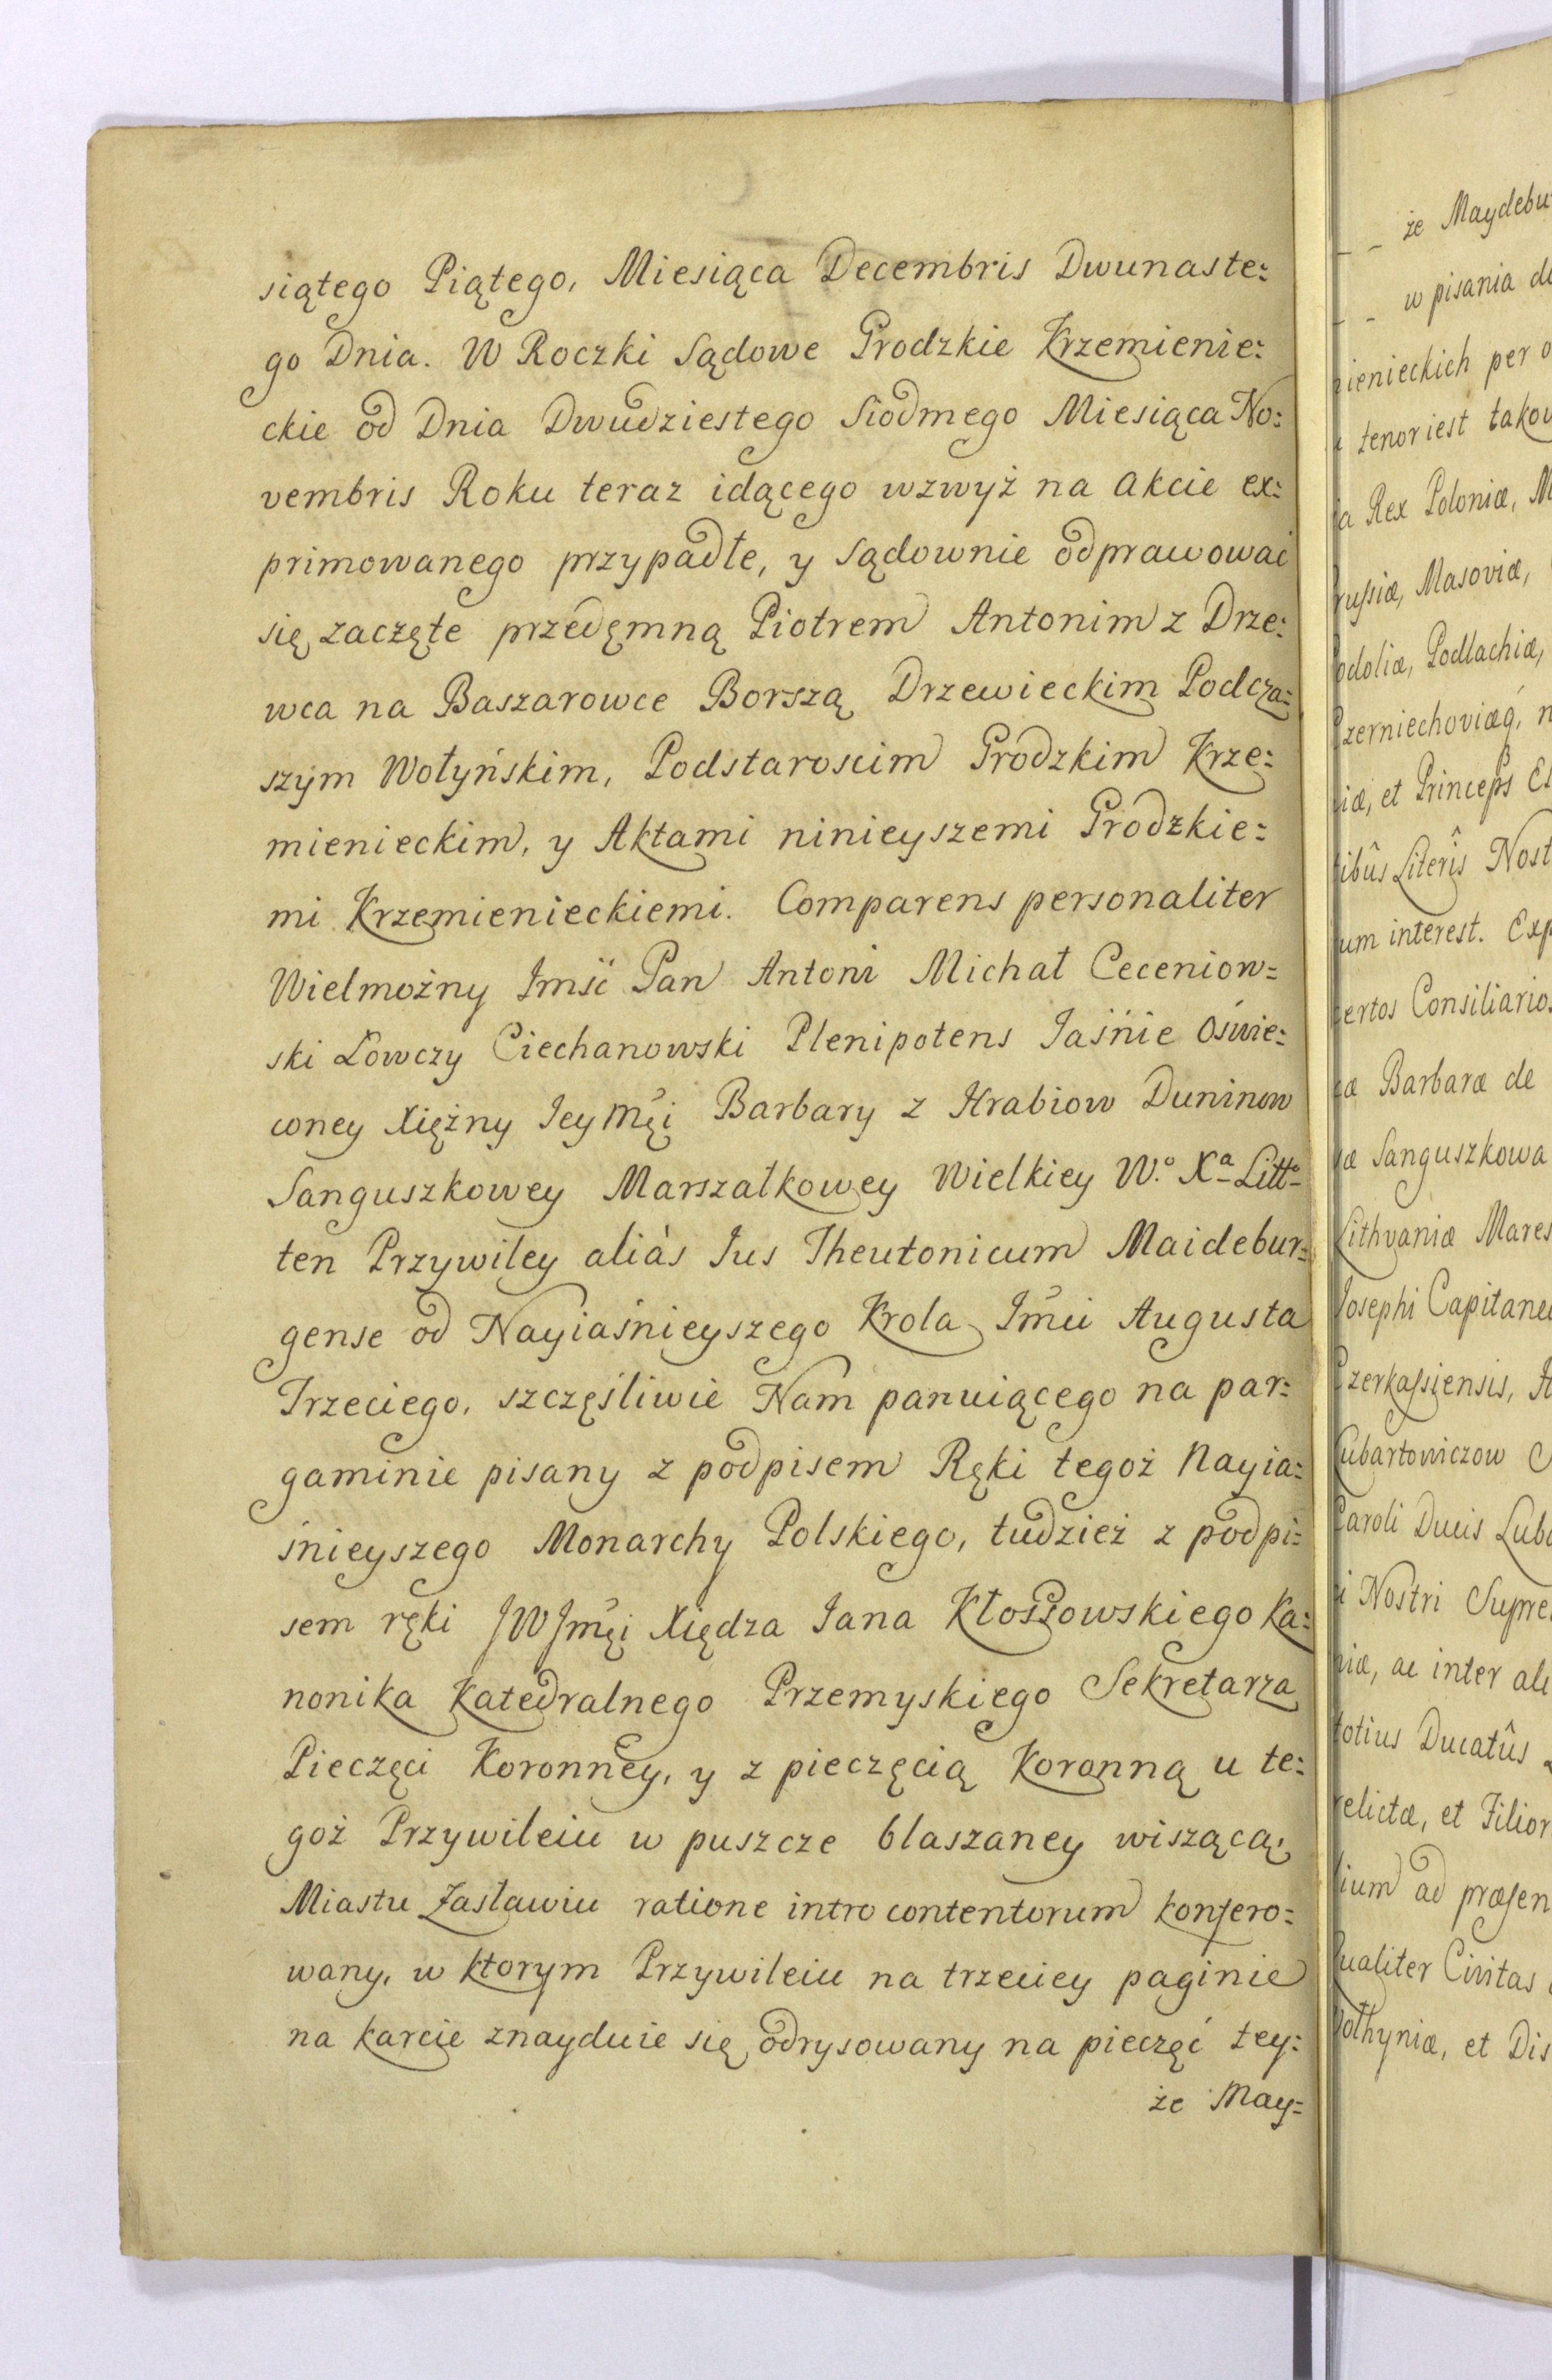 siątego Piątego, Miesiąca Decembris Dwunaste:
go Dnia. W Roczki Sądowe Grodzkie Krzemienie:
ckie od Dnia Dwudziestego Siodmego Miesiąca No:
vembris Roku teraz idącego wzwyż na Akcie ex:
primowanego przypadłe, y Sądownie odprawować
się zaczęte przedęmną Piotrem Antonim z Drze:
wca na Baszarowce Borszą Drzewieckim Podcza:
szym Wołyńskim, Podstaroscim Grodzkim Krze:
mienieckim, y Aktami ninieyszemi Grodzkie:
mi Krzemienieckiemi. Comparens personaliter
Wielmożny Imść Pan Antoni Michał Ceceniow:
ski Łowczy Ciechanowski Plenipotens Jaśnie Oświe:
coney Xiężny Jey Mći Barbary z Hrabiow Duninow
Sanguszkowey Marszałkowey Wielkiey W.º Xª Litt:
ten Przywiley aliàs Jus Theutonicum Maidebur:
gense od Nayiaśnieyszego Krola Imći Augusta
Trzeciego, szczęśliwie Nam panuiącego na par:
gaminie pisany z podpisem Ręki tegoż Nayia:
śnieyszego Monarchy Polskiego, tudzież z podpi:
sem ręki JWJmći Xiędza Jana Kłossowskiego Ka:
nonika Katedralnego Przemyskiego Sekretarza
Pieczęci Koronney, y z pieczęcią Koronną u te:
goż Przywileiu w puszcze blaszaney wiszącą,
Miastu Zasławiu ratione intro contentorum konfero:
wany, w ktorym Przywileiu na trzeciey paginie
na karcie znayduie się odrysowany na pieczęć tey:
że May:
że Maydebu
w pisania do
nienieckich per o
tenor iest takow
Rex Poloniæ, M
Prussiæ, Masoviæ,
Podoliæ, Podlachiæ,
Czerniechoviæq́,
et Princeps El
Literîs Nost
interest. Exp
certos Consiliarios
Barbaræ de
Sanguszkowa
Lithvaniæ Mares
Josephi Capitane
Czerkassiensis,
Lubartowiczow
Caroli Ducis Luba
Nostri Supre
ac inter ali
totius Ducatûs
relictæ, et Filior
ad præsen
Qualiter Civitas
Wołhyniæ, et Dis